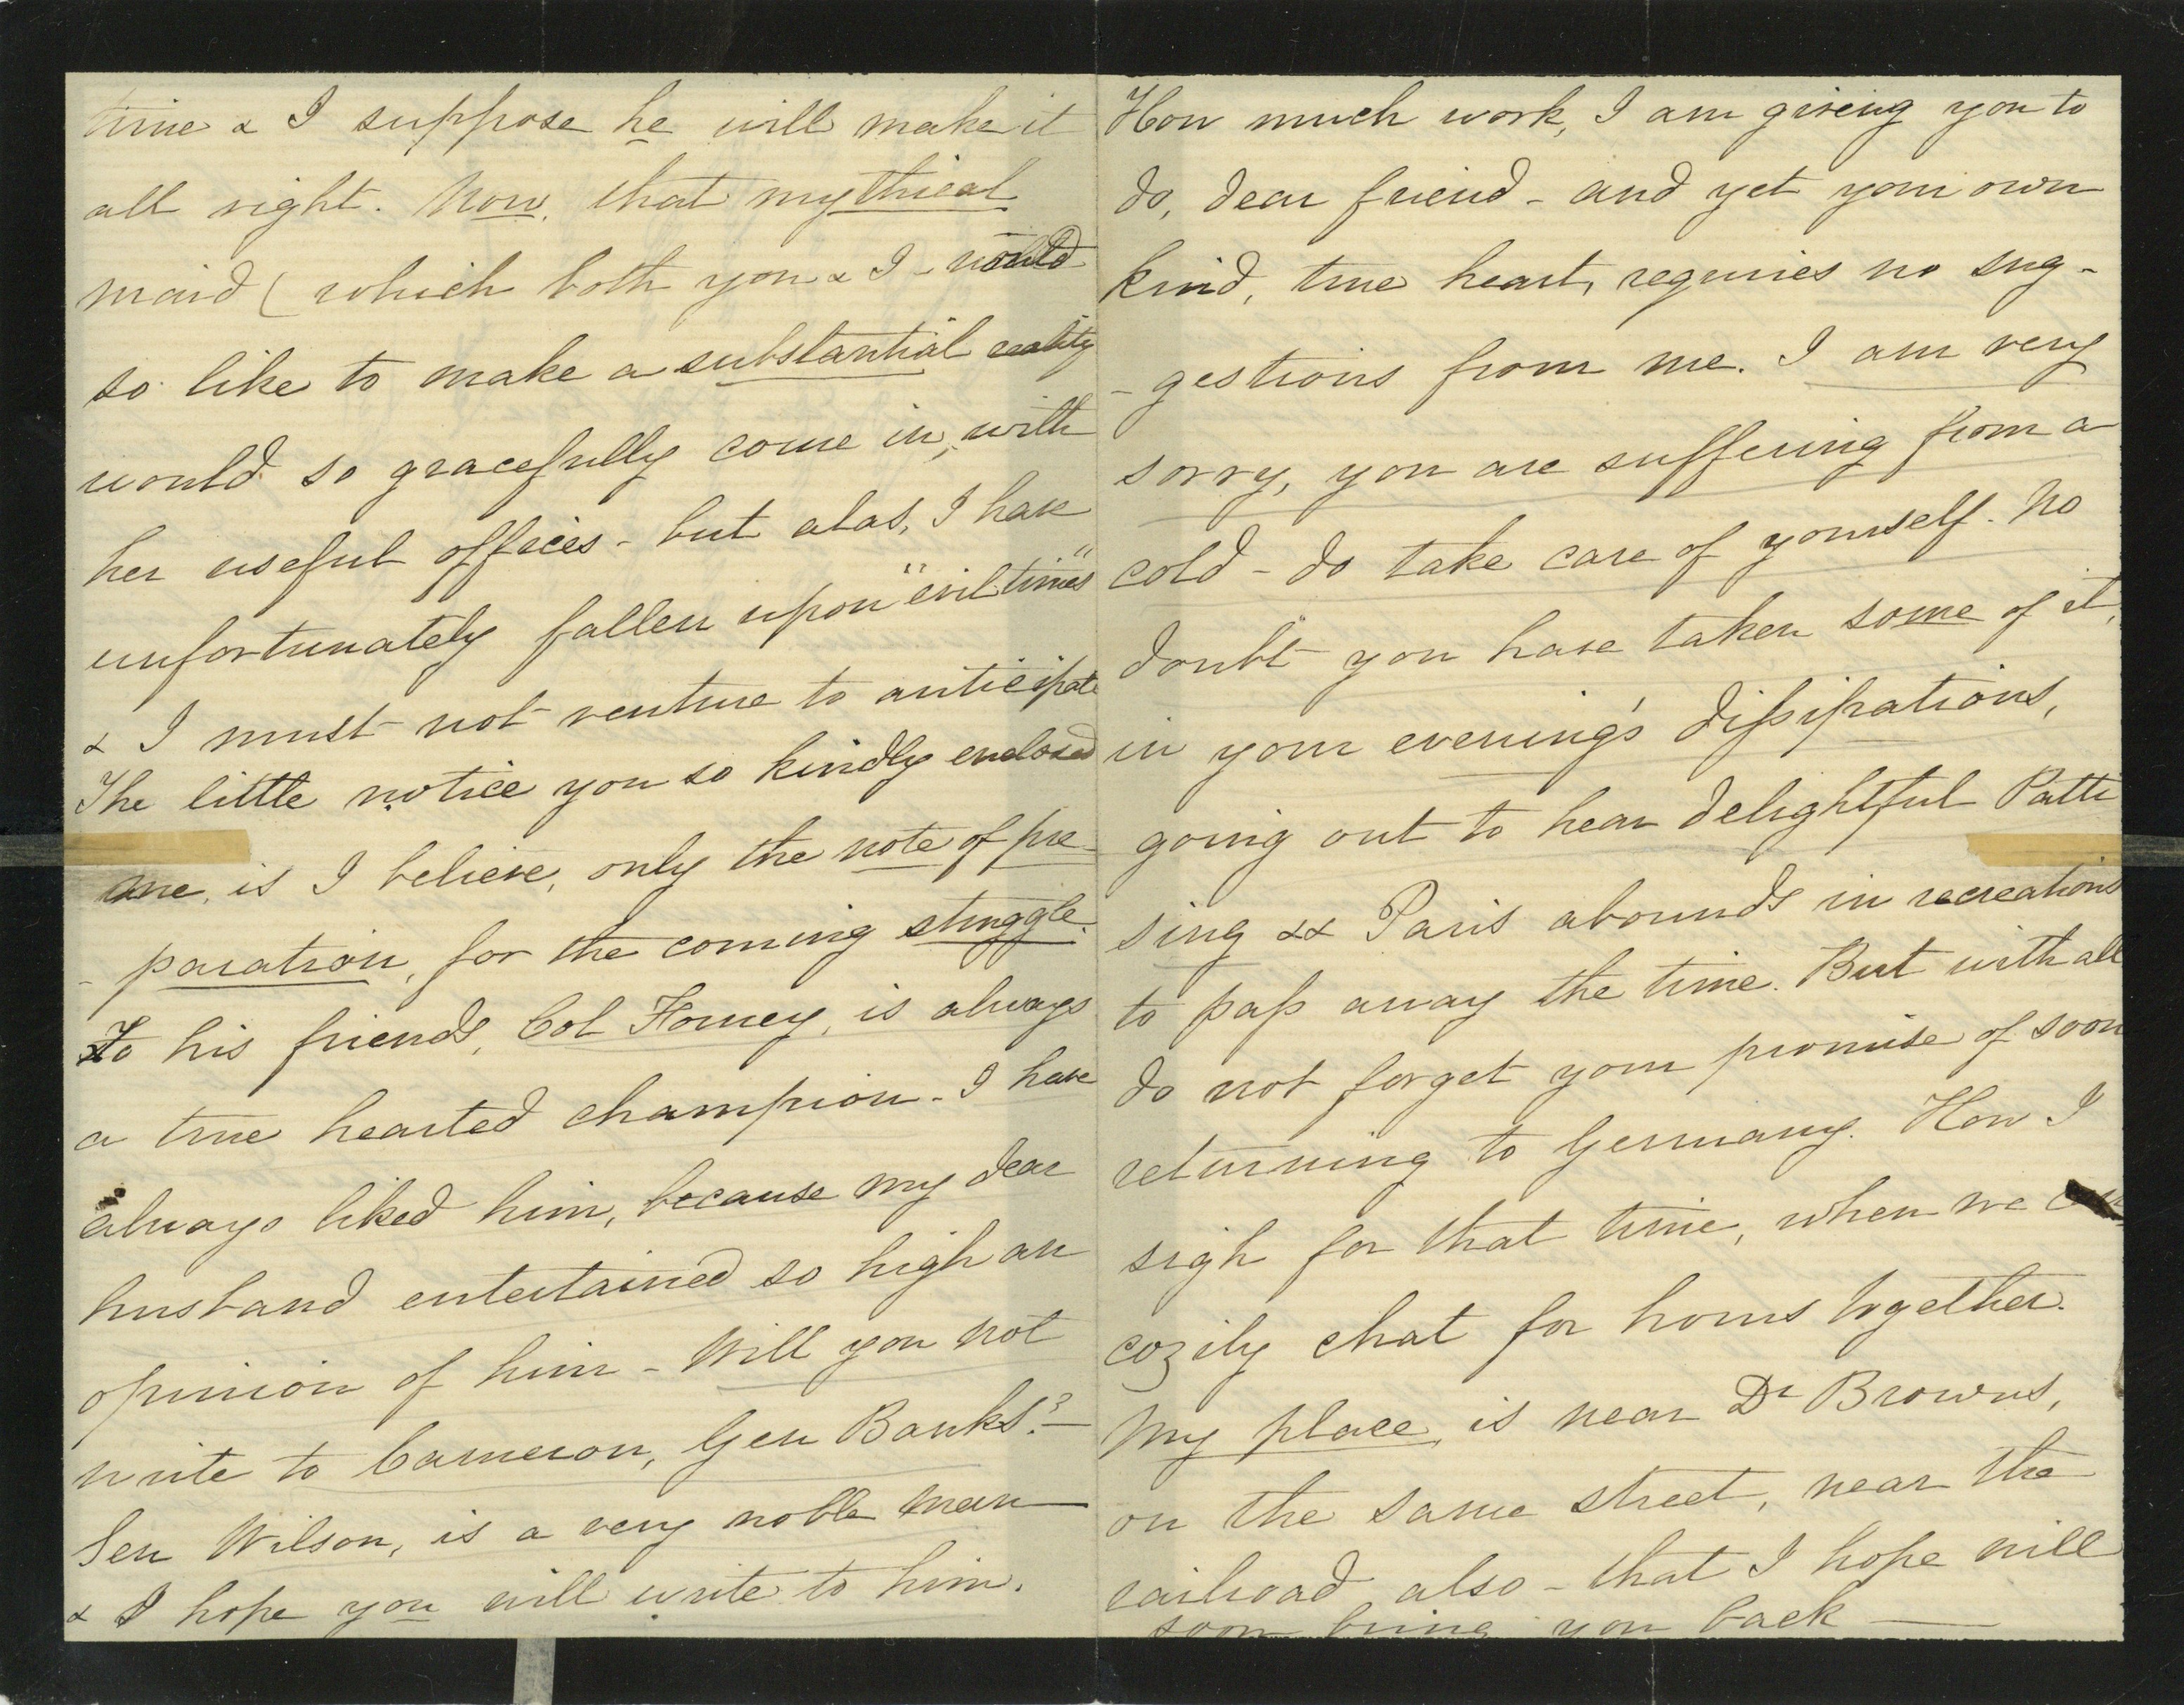 time & I suppose he will make it
all right. Now, that mythical
maid ( which both you & I - would
so like to make a substantial reality
would so gracefully come in, with
her useful offices - but alas, I have
unfortunately fallen upon "evil times"
& I must not venture to anticipate
The little notice you so kindly enclosed
me, is I believe, only the note of pre
- paration, for the coming struggle.
To his friends, Col Forney, is always
a true hearted champion - I have
always liked him, because my dear
husband entertained so high an
opinion of him - Will you not
write to Cameron, Gen Banks? -
Sen Wilson, is a very noble man
& I hope you will write to him.
How much work, I am giving you to
do, dear friend - and yet your own
kind, true heart, requires no sug -
- gestions from me. I am very
sorry, you are suffering from a
cold - do take care of yourself. No
doubt you have taken some of it,
in your evening's dissipations,
going out to hear delightful Patti
sing && Paris abounds in recreations
to pass away the time. But with all
do not forget your promise of soon
returning to Germany. How I
sigh for that time, when we can
cozily chat for hours together.
My place, is near Dr Browns,
on the same street, near the
railroad also - that I hope will
soon bring you back —